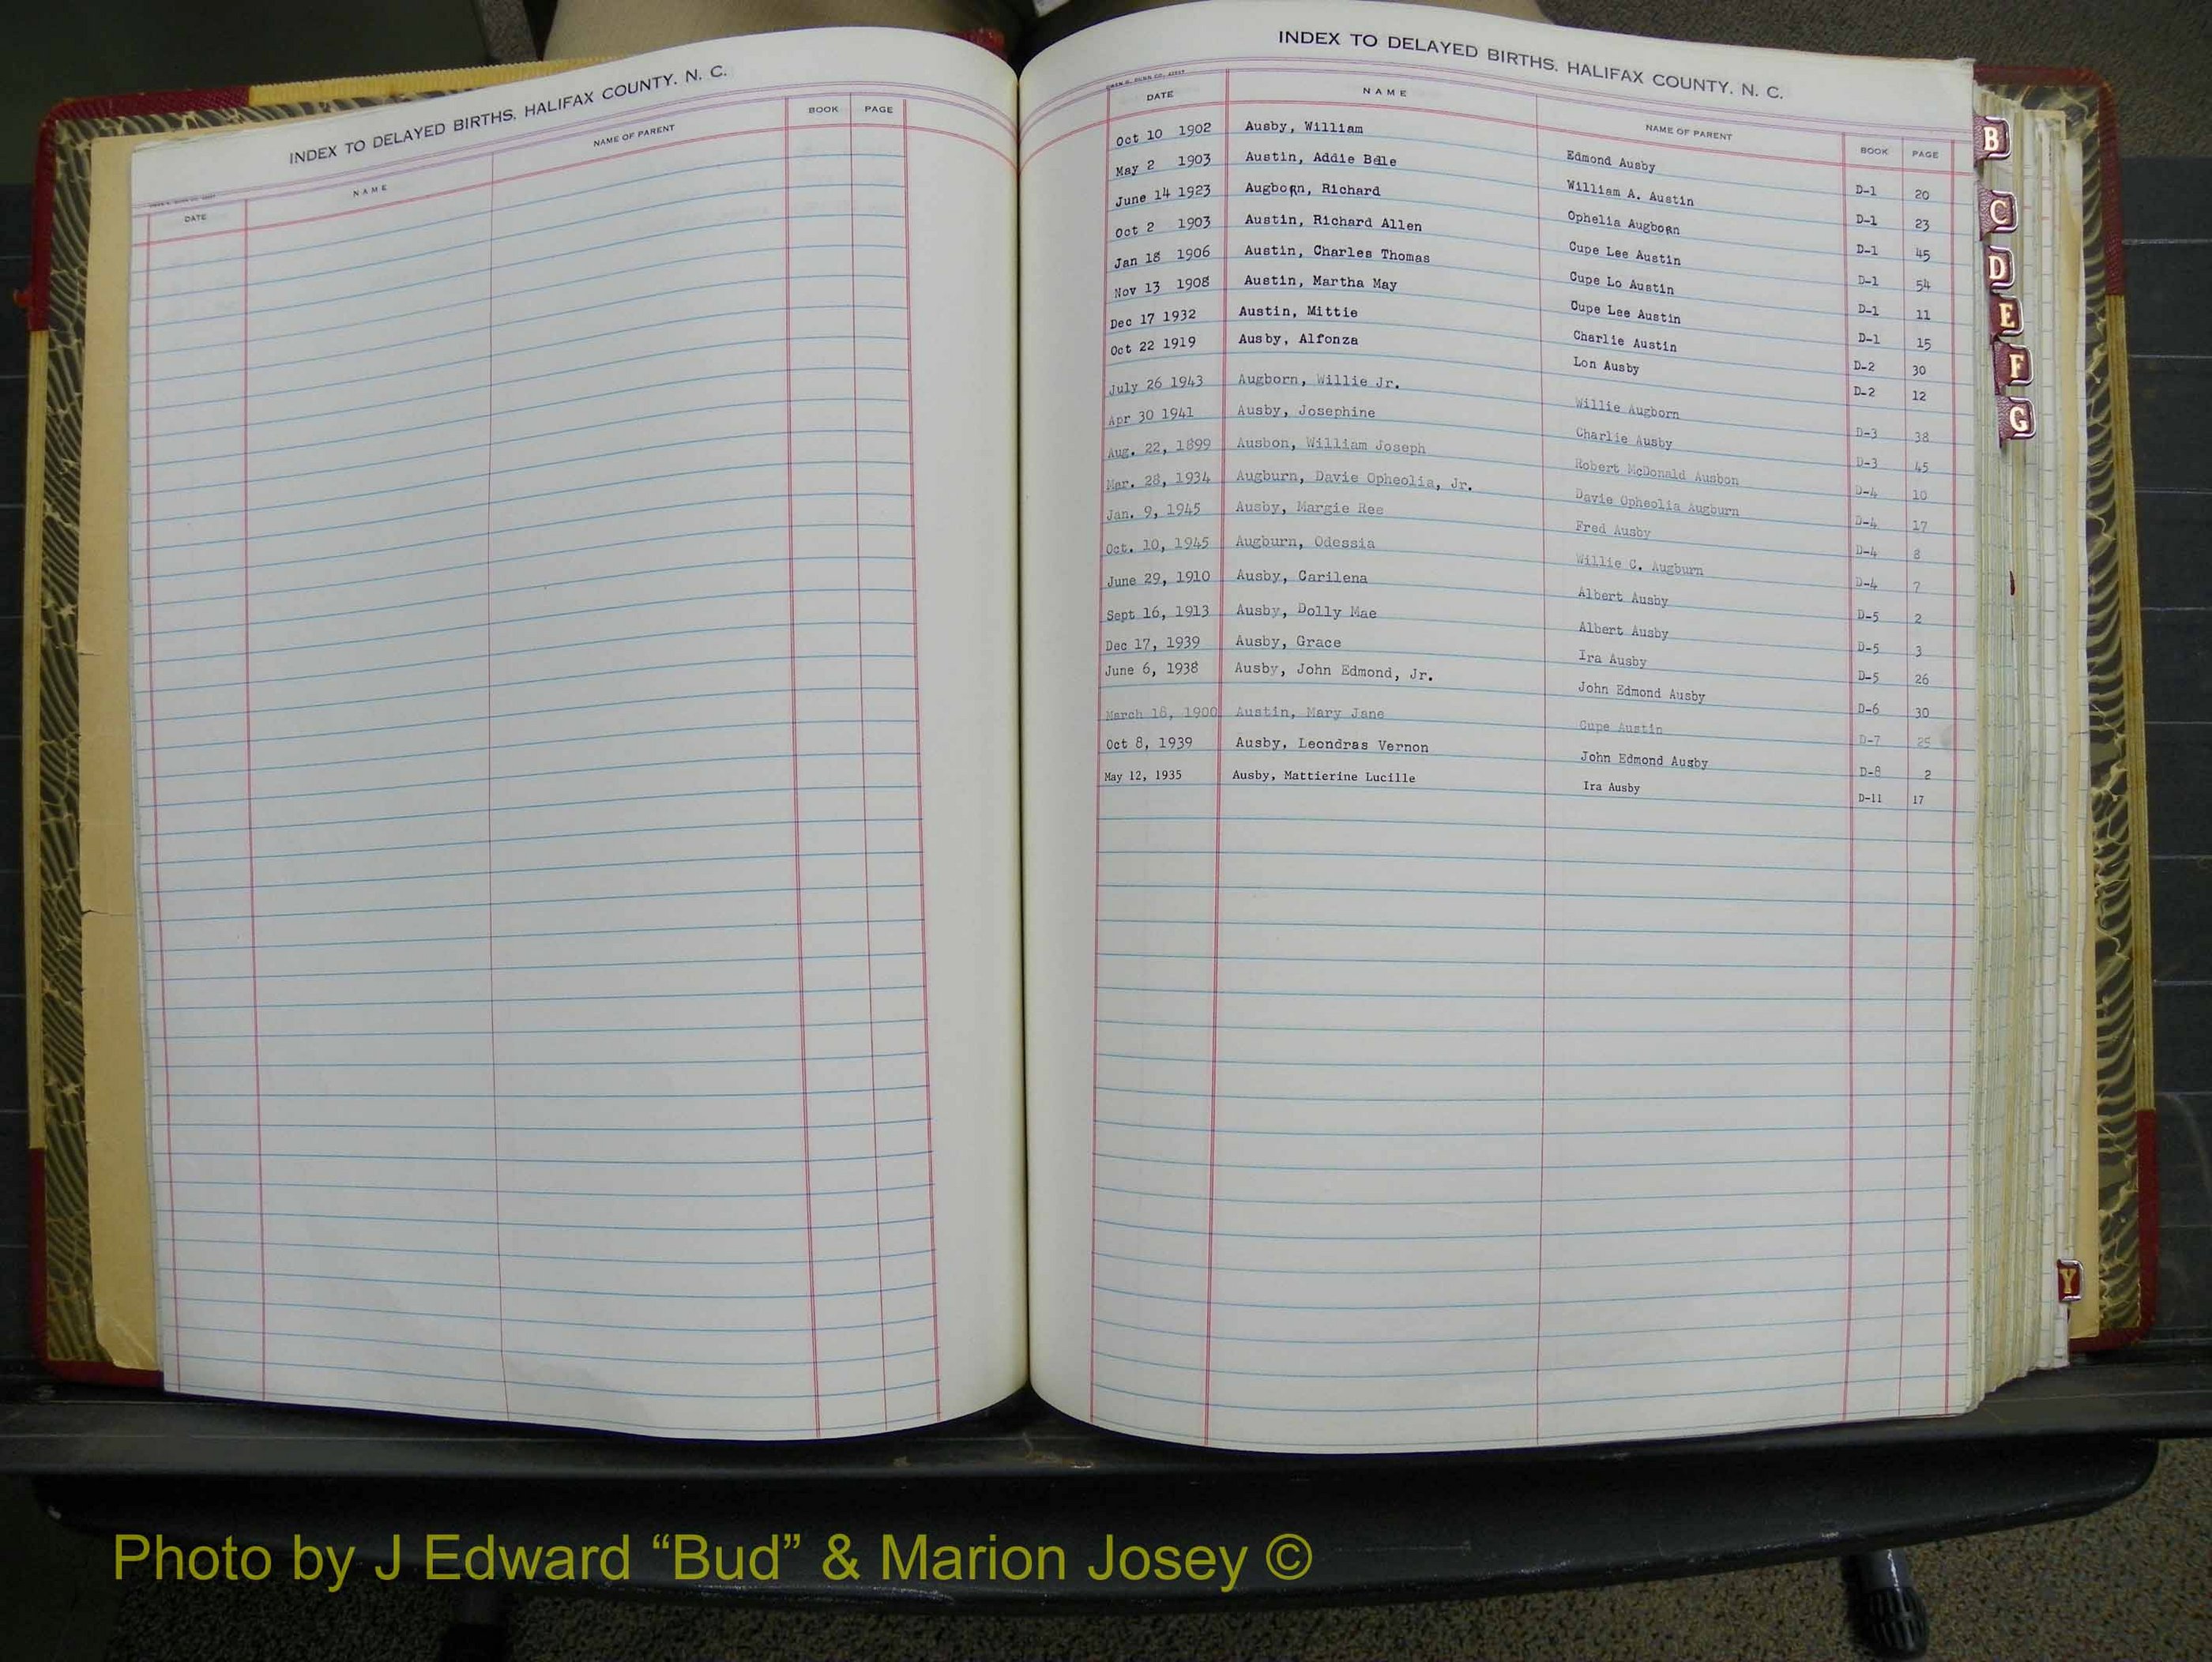 INDEX TO DELAYED BIRTHS, HALIFAX COUNTY, N. C.
DATE NAME NAME OF PARENT BOOK PAGE
INDEX TO DELAYED BIRTHS, HALIFAX COUNTY, N. C.
DATE NAME NAME OF PARENT BOOK PAGE
Oct 10 1902 Ausby, William Edmond Ausby D-1 20
May 2 1903 Austin, Addie Belle William A. Austin D-1 23
June 14 1923 Augborn, Richard Ophelia Augborn D-1 45
Oct 2 1903 Austin, Richard Allen Cupe Lee Austin D-1 54
Jan 18 1906 Austin, Charles Thomas Cupe Lo Austin D-1 11
Nov 13 1908 Austin, Martha May Cupe Lee Austin D-1 15
Dec 17 1932 Austin, Mittie Charlie Austin D-2 30
Oct 22 1919 Ausby, Alfonza Lon Ausby D-2 12
July 26 1943 Augborn, Willie Jr. Willie Augborn D-3 38
Apr 30 1941 Ausby, Josephine Charlie Ausby D-3 45
Aug. 22, 1899 Ausbon, William Joseph Robert McDonald Ausbon D-4 10
Mar. 28, 1934 Augburn, Davie Opheolia, Jr. Davie Opheolia Augburn D-4 17
Jan. 9, 1945 Ausby, Margie Ree Fred Ausby D-4 8
Oct. 10, 1945 Augburn, Odessia Willie C. Augburn D-4 7
June 29, 1910 Ausby, Carilena Albert Ausby D-5 2
Sept 16, 1913 Ausby, Dolly Mae Albert Ausby D-5 3
Dec 17, 1939 Ausby, Grace Ira Ausby D-5 26
June 6, 1938 Ausby, John Edmond, Jr. John Edmond Ausby D-6 30
March 18, 1900 Austin, Mary Jane Cupe Austin D-7 25
Oct 8, 1939 Ausby, Leondras Vernon John Edmond Ausby D-8 2
May 12, 1935 Ausby, Mattierine Lucille Ira Ausby D-11 17
B
C
D
E
F
G
Y
Photo by J Edward “Bud” & Marion Josey ©